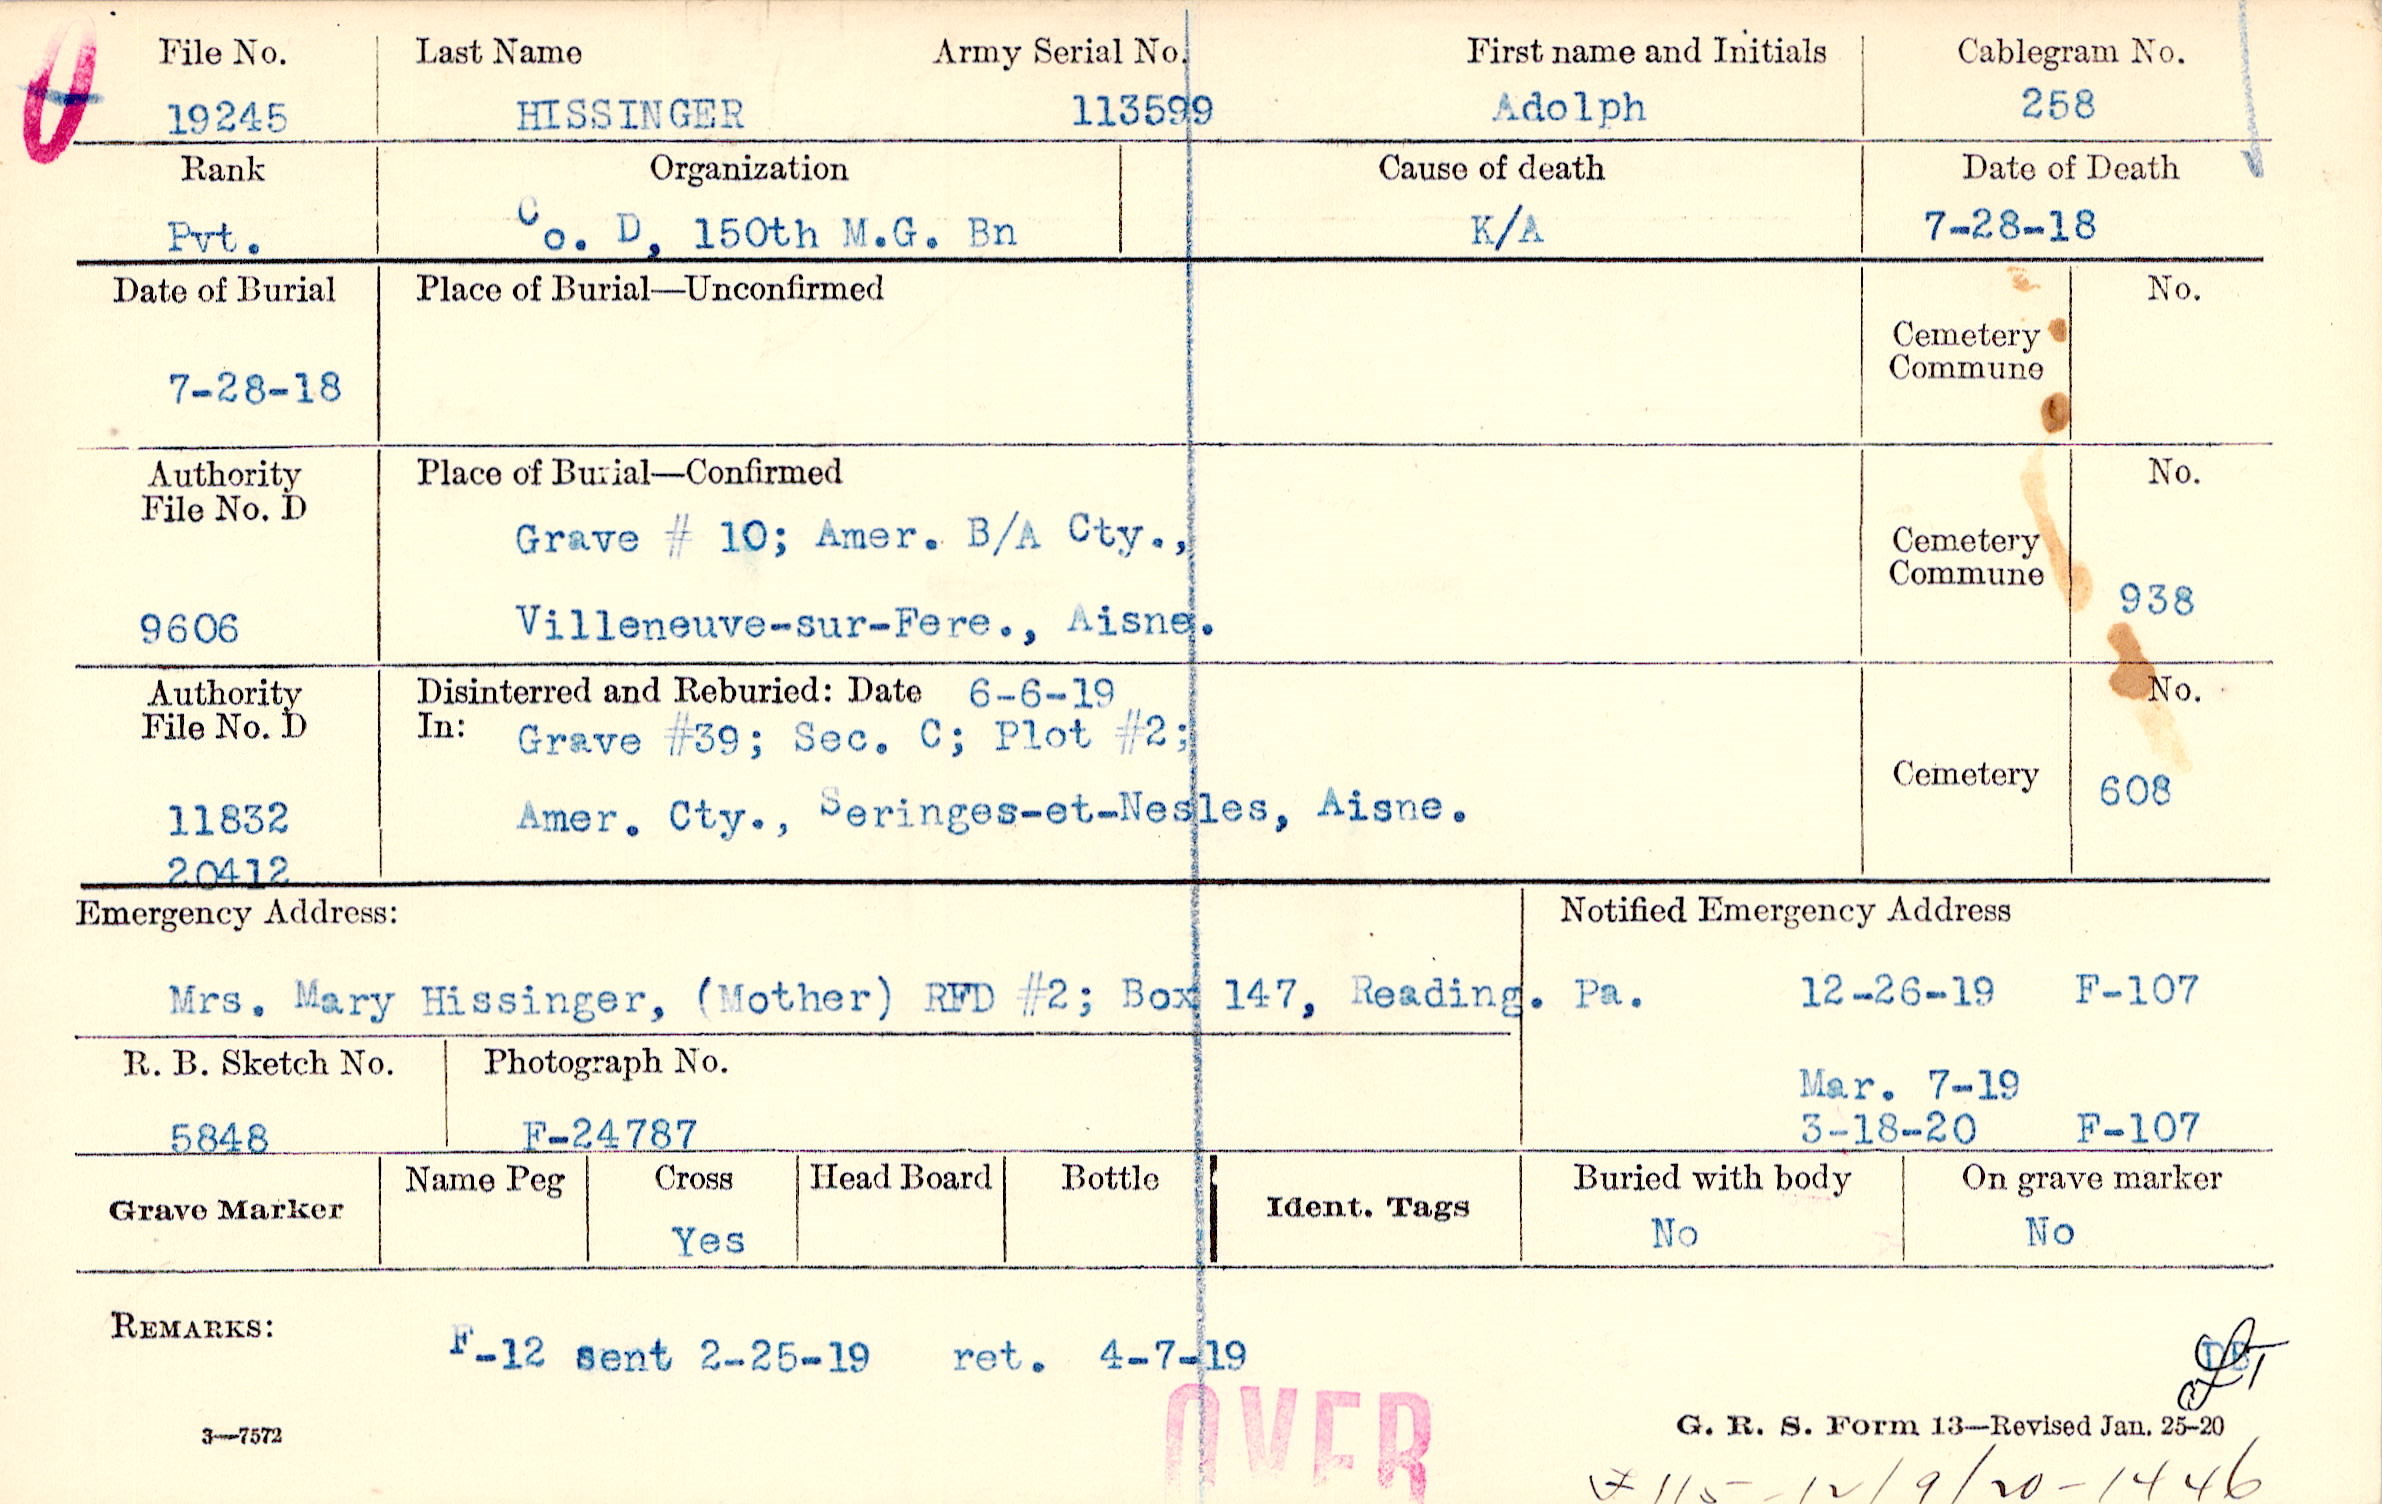 File No. Last Name Army Serial No. First name and Initials Cablegram No.
19245 HISSINGER 113599 Adolph 258
Rank Organization Cause of death Date of Death
Pvt. Co. D, 150th M.G. Bn K/A 7-28-18
Date of Burial Place of Burial—Unconfirmed No.
Cemetery
Commune
7-28-18
Authority Place of Burial—Confirmed No.
File No. D
Grave # 10; Amer. B/A Cty.,
Cemetery
Commune
9606 Villeneuve-sur-Fere., Aisne. 938
Authority Disinterred and Reburied: Date 6-6-19 No.
File No. D In: Grave #39; Sec. C; Plot #2;
Cemetery 608
11832 Amer. Cty., Seringes-et-Nesles, Aisne.
20412
Emergency Address: Notified Emergency Address
Mrs. Mary Hissinger, (Mother) RFD #2; Box 147, Reading. Pa. 12-26-19 F-107
R. B. Sketch No. Photograph No.
Mar. 7-19
5848 F-24787 3-18-20 F-107
Grave Marker Name Peg Cross Head Board Bottle Ident. Tags Buried with body On grave marker
Yes No No
REMARKS: F-12 sent 2-25-19 ret. 4-7-19
OVER
3—7572 G. R. S. Form 13—Revised Jan. 25-20
115-12/9/20-1446